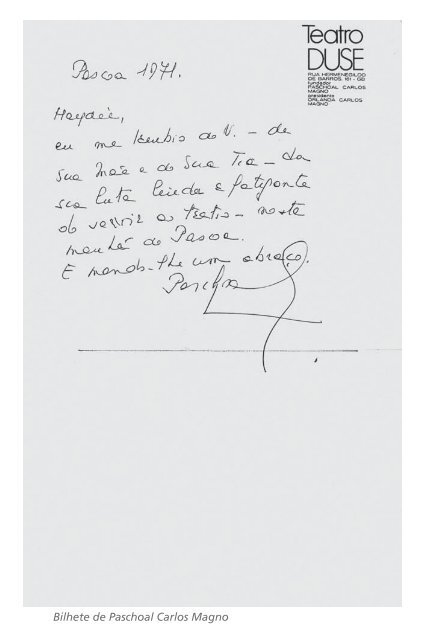 Teatro
DUSE
RUA HERMENEGILDO
DE BARROS, 161 - GB
fundador
PASCHOAL CARLOS
MAGNO
presidente
ORLANDA CARLOS
MAGNO
Pascoa 1971.
Haydée,
eu me lembro de V. - de
sua Mãe e de sua Tia - da
sua luta linda e fatigante
de servir ao teatro - nesta
manhã de Pascoa.
E mando-lhe um abraço.
Paschoal
Bilhete de Paschoal Carlos Magno